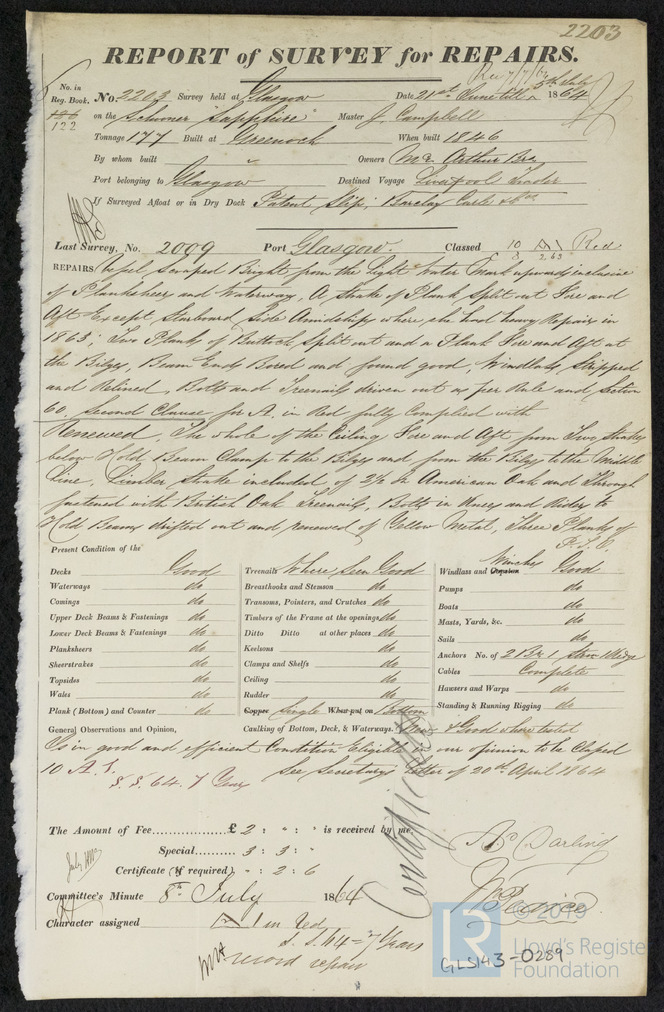 2203
REPORT of SURVEY for REPAIRS.
Rec 7/7/64
No. in Reg. Book. No. 2203 Survey held at Glasgow Date 21st June till 5th July 1864
186 on the Schooner "Sapphire" Master J. Campbell
122
Tonnage 177 Built at Greenock When built 1846
By whom built Owners Mc Arthur Bro
Port belonging to Glasgow Destined Voyage Liverpool Trader
If Surveyed Afloat or in Dry Dock Patent Slip, Barclay Curle & Co.
Last Survey, No. 2009 Port Glasgow. Classed 10 A 1 Red
8 2.63
REPAIRS/ Vessel scraped Bright from the Light Water Mark upwards inclusive
of Planksheer and Waterways, A Strake of Plank Split out Fore and
Aft Except Starboard Side Amidships where she had heavy Repairs in
1863; Two Planks of Buttock Split out and a Plank Fore and Aft at
the Bilges, Beam Ends Bored and found good, Windlass Stripped
and Relined, Bolts and Treenails driven out as per Rule and Section
60, Second Clause for A. in Red fully Complied with
Renewed, The whole of the Ceiling Fore and Aft from Two Strakes
below Hold Beam Clamp to the Bilges and from the Bilges to the Middle
Line, Limber Strake included of 2½ In American Oak and Through
fastened with British Oak Treenails, Bolts in Knees and Riders to
Hold Beams drifted out and renewed of Yellow Metal, Three Planks of
P.T.O.
Present Condition of the
Decks Good Treenails Where Seen Good Windlass and Capstan Winches Good
Waterways do Breasthooks and Stemson do Pumps do
Comings do Transoms, Pointers, and Crutches do Boats do
Upper Deck Beams & Fastenings do Timbers of the Frame at the openings do Masts, Yards, &c. do
Lower Deck Beams & Fastenings do Ditto Ditto at other places do Sails do
Planksheers do Keelsons do Anchors No. of 2 Br 1 Stream 1 Kedge
Sheerstrakes do Clamps and Shelfs do Cables Complete
Topsides do Ceiling do Hawsers and Warps do
Wales do Rudder do Standing & Running Rigging do
Plank (Bottom) and Counter do Copper Single When put on Bottom
General Observations and Opinion, Caulking of Bottom, Deck, & Waterways. & Good where tested
Is in good and efficient Condition Eligible in our opinion to be Classed
10 A.1. See Secretarys Letter of 20th April 1864
S.S. 64. 7 Years
The Amount of Fee.................. £ 2 : " : " is received by me,
Special.......... 3 : 3 : "
Certificate (if required) " : 2 : 6
Certificate
A. Darling
Pearce
Committee's Minute 8th July 1864
Character assigned A 1 in Red
S.S. 64 = 7 Years
record repair
© 2019
LR
Lloyd's Register
Foundation
GLS143-0289